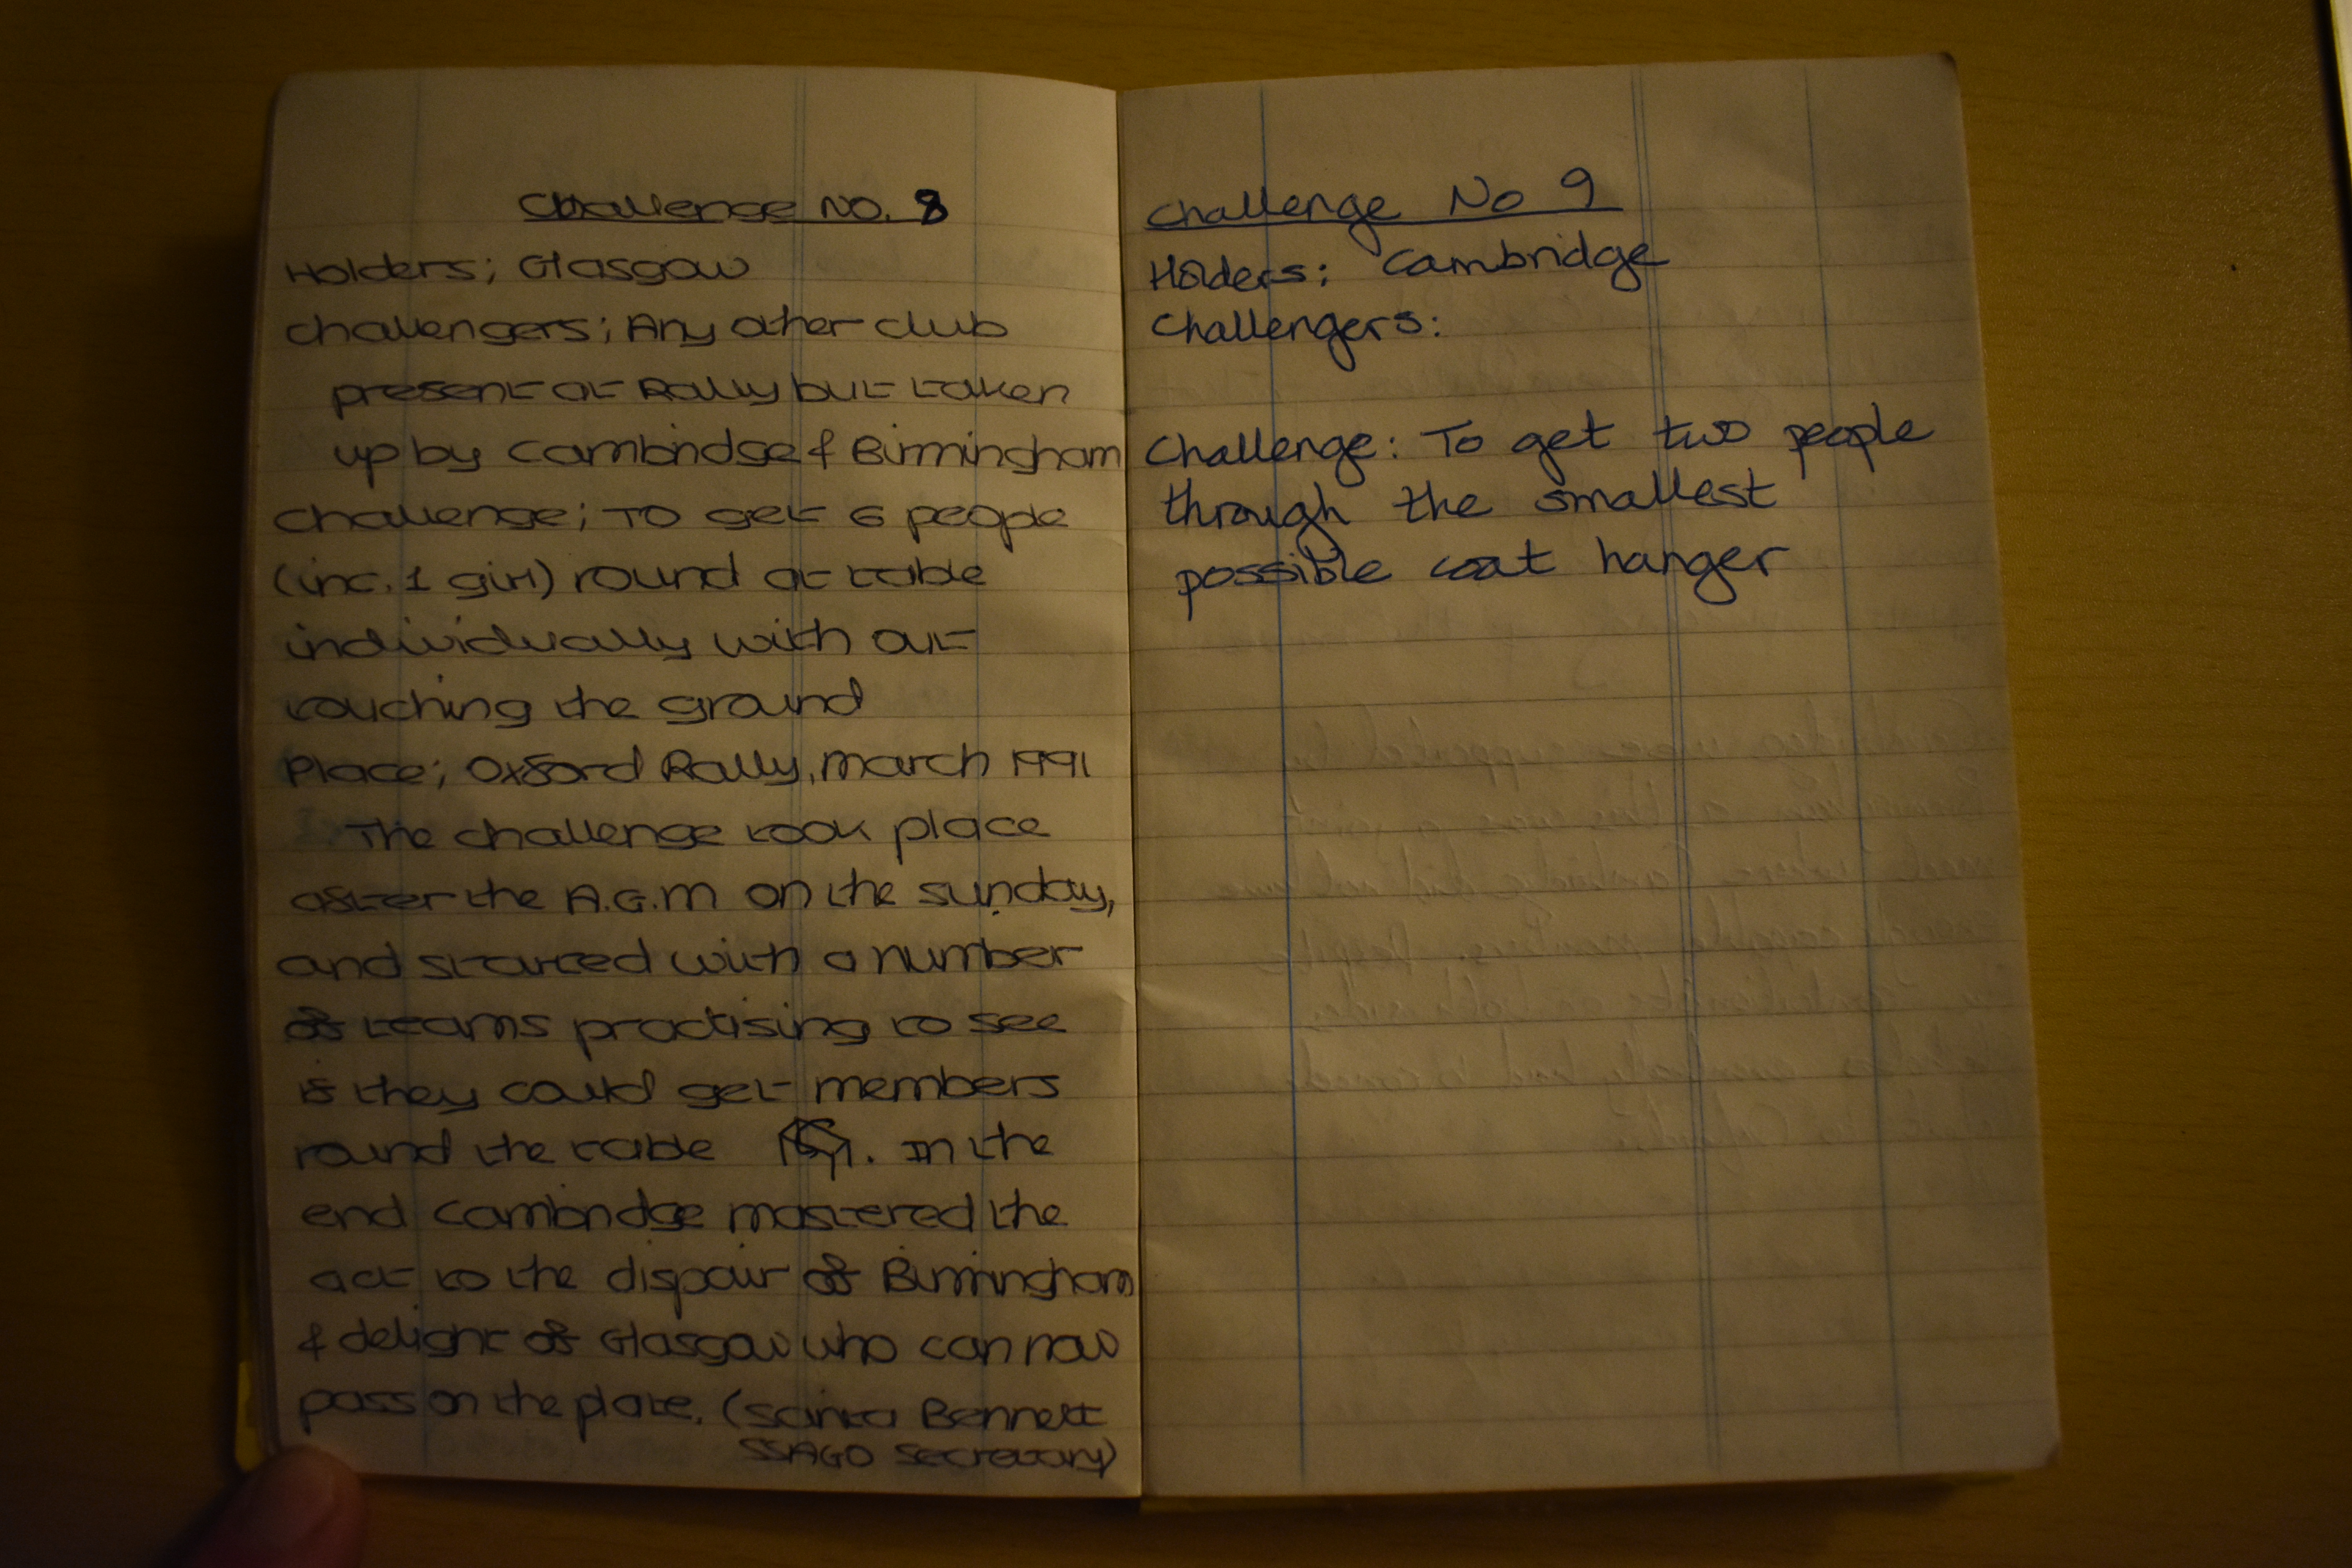 Challenge NO. 8
Holders; Glasgow
Challengers; Any other club
present at Rally but taken
up by Cambridge & Birmingham
Challenge; TO get 6 people
(inc. 1 girl) round at table
individually with out
touching the ground
Place; Oxford Rally, March 1991
The challenge took place
after the A.G.M on the sunday,
and started with a number
of teams practising to see
if they could get members
round the table . In the
end Cambridge mastered the
act to the dispair of Birmingham
& delight of Glasgow who can now
pass on the plate. (Bennett
SSAGO Secretary)
Challenge No 9
Holders: Cambridge
Challengers:
Challenge: To get two people
through the smallest
possible coat hanger